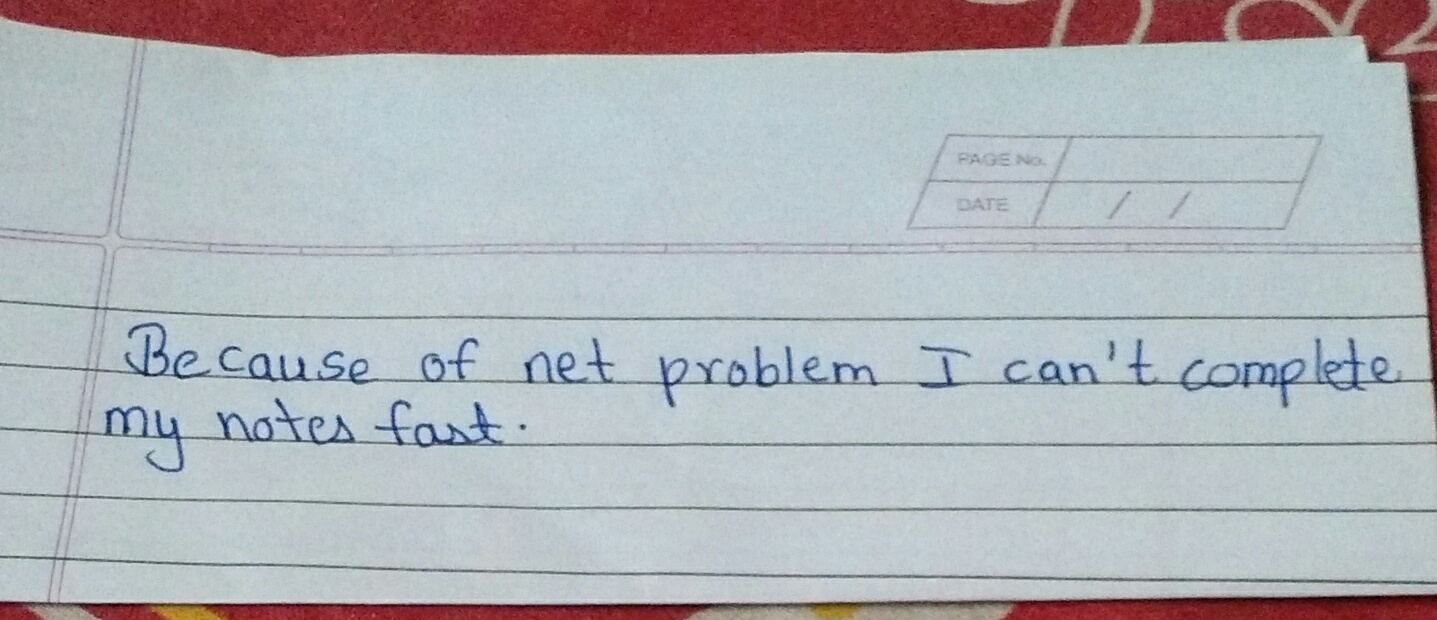 PAGE No.
DATE / /
Because of net problem I can't complete
my notes fast.